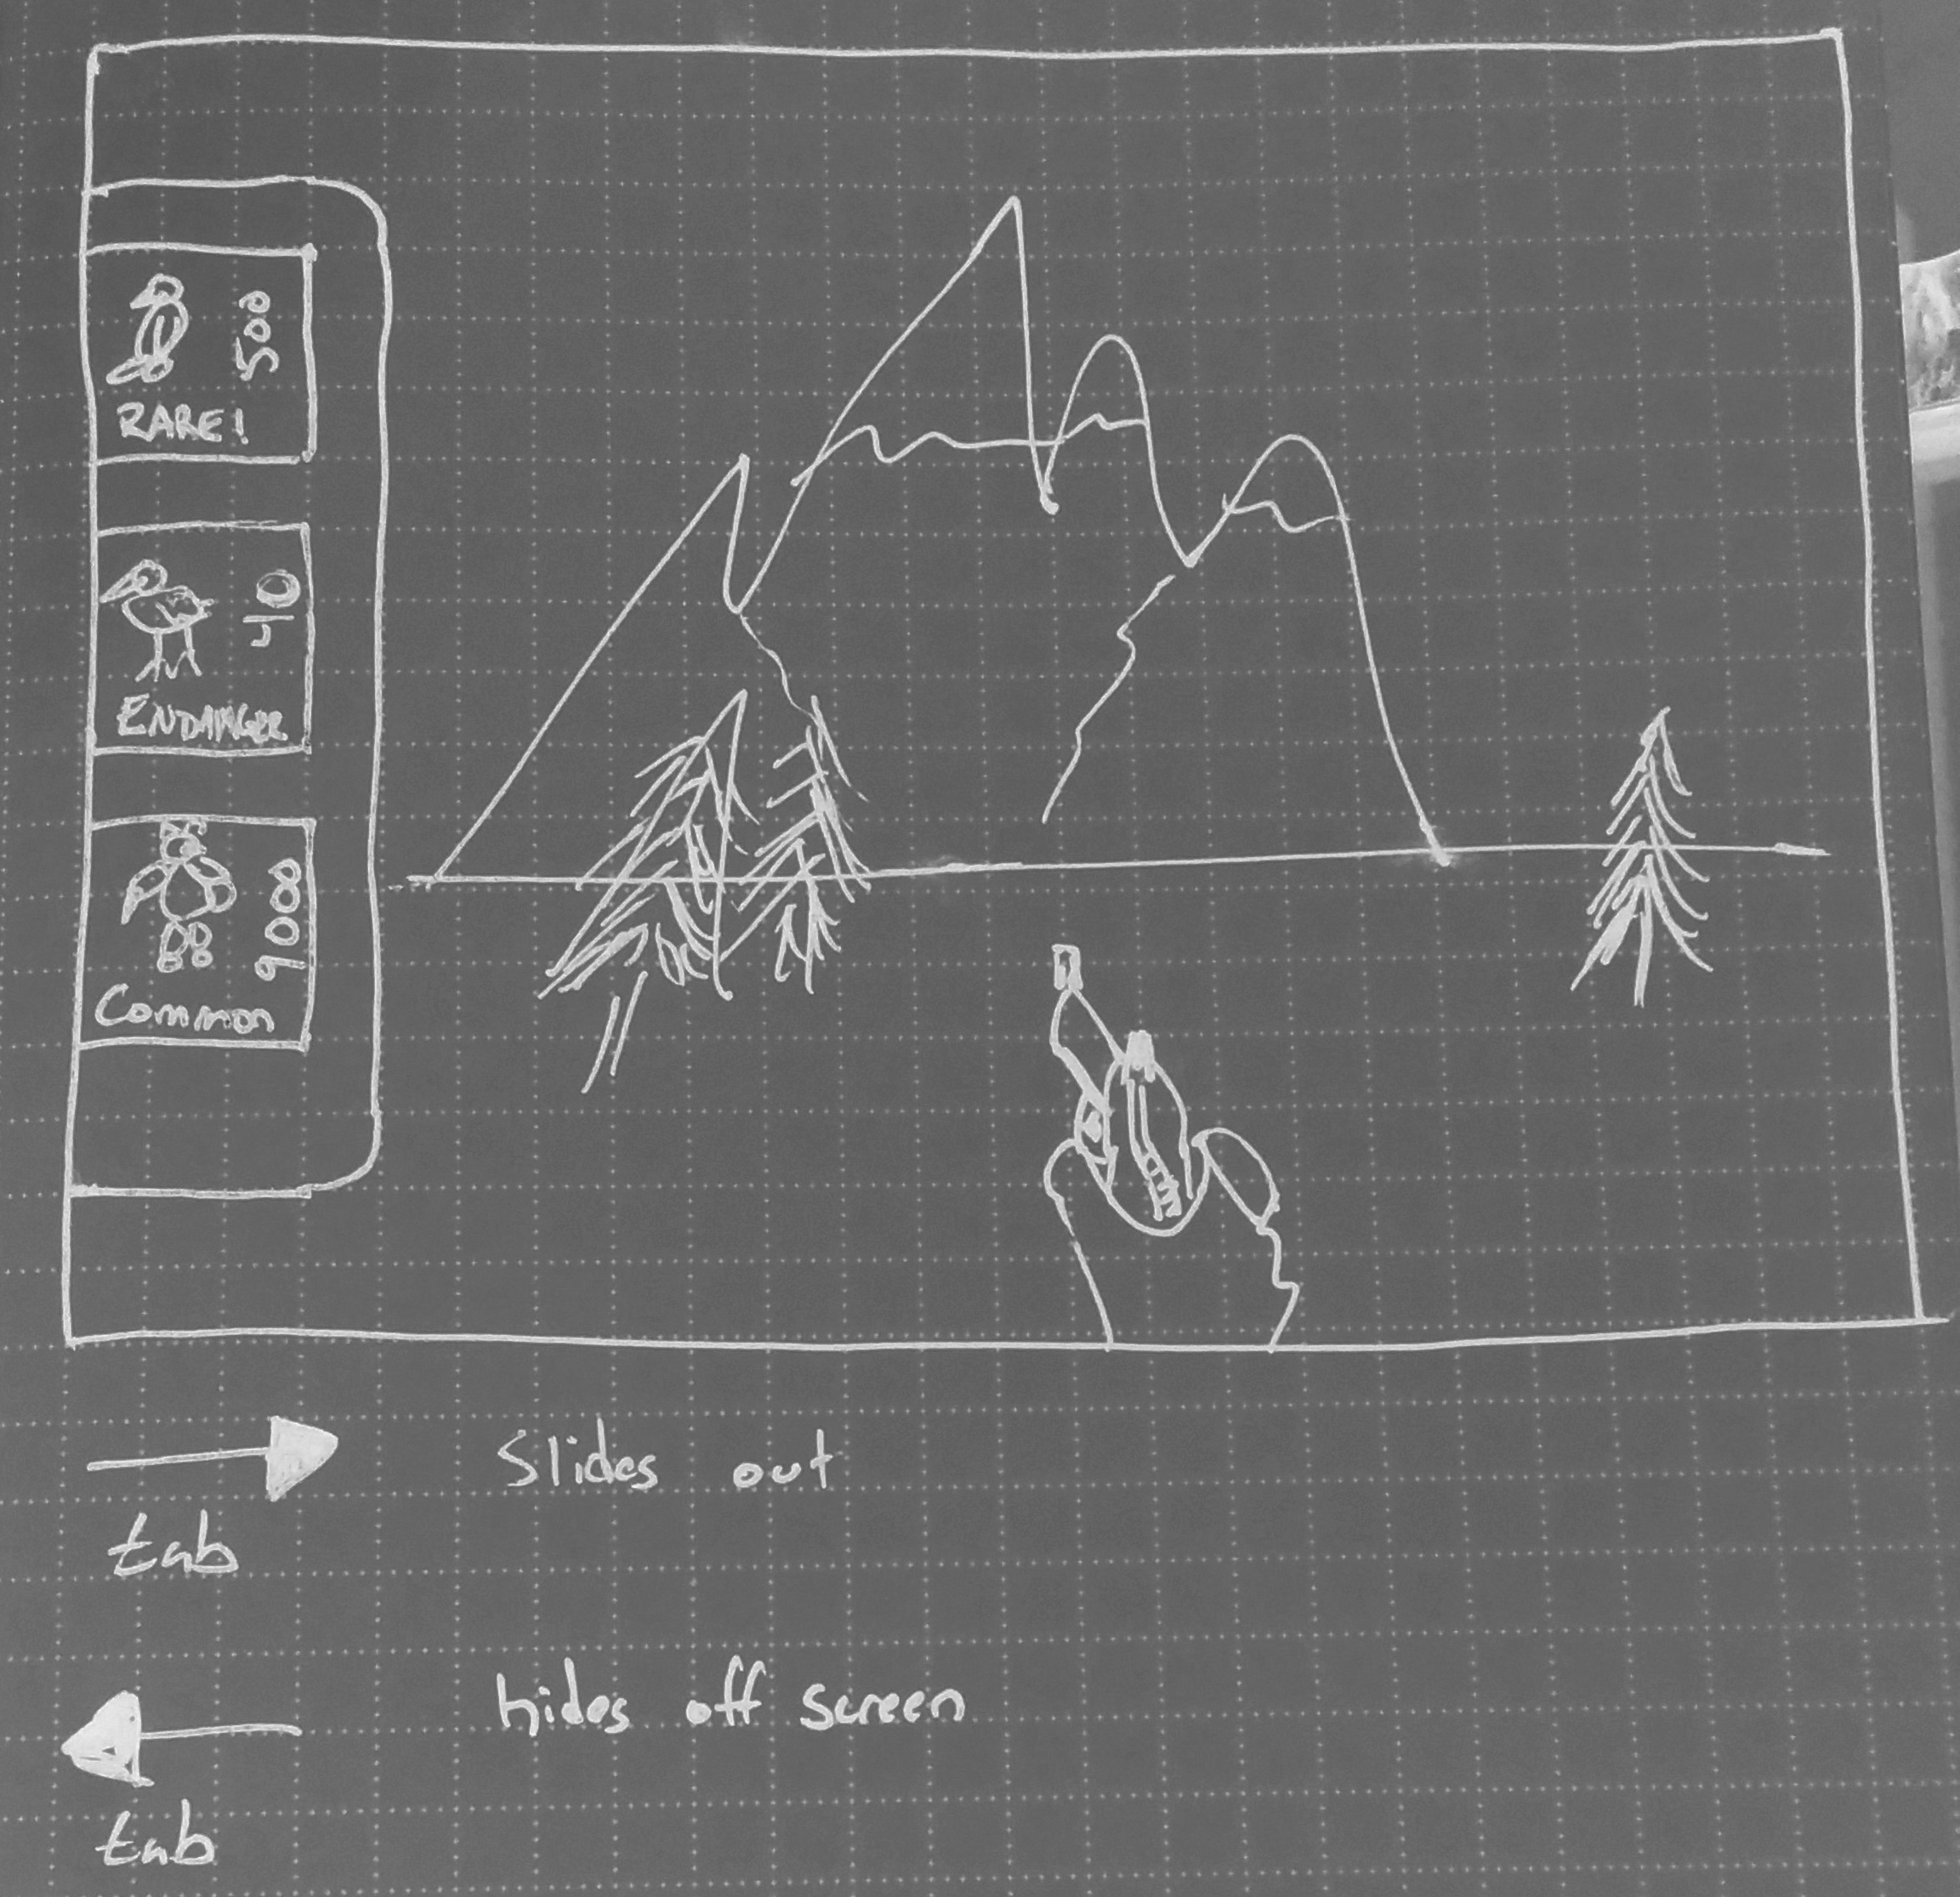 500
RARE!
40
ENDANGER
9000
Common
Slides out
tab
hides off screen
tab